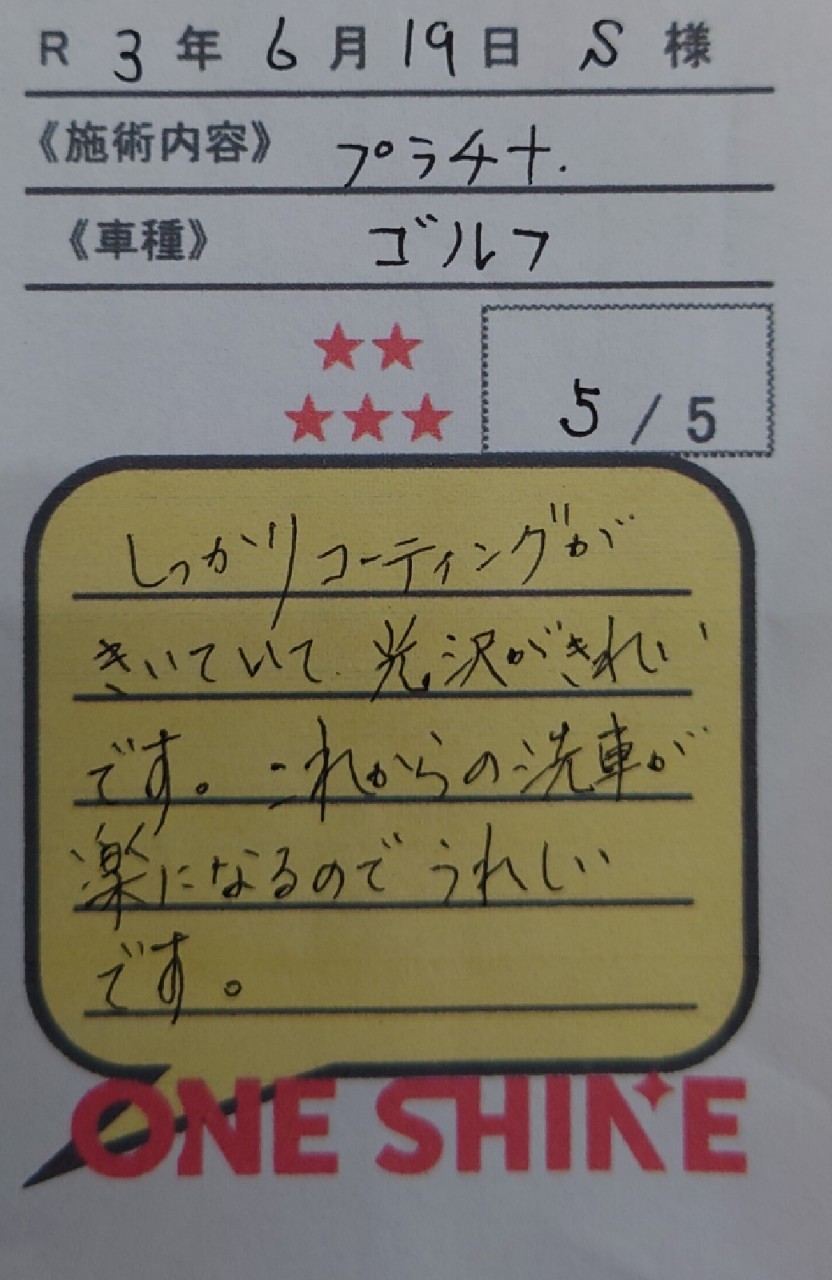 R 3 年 6 月 19 日 S 様
《施術内容》 プラチナ.
《車種》 ゴルフ
★★
★★★ 5 / 5
しっかりコーティングが
きいていて、光沢がきれい
です。これからの洗車が
楽になるのでうれしい
です。
ONE SHINE